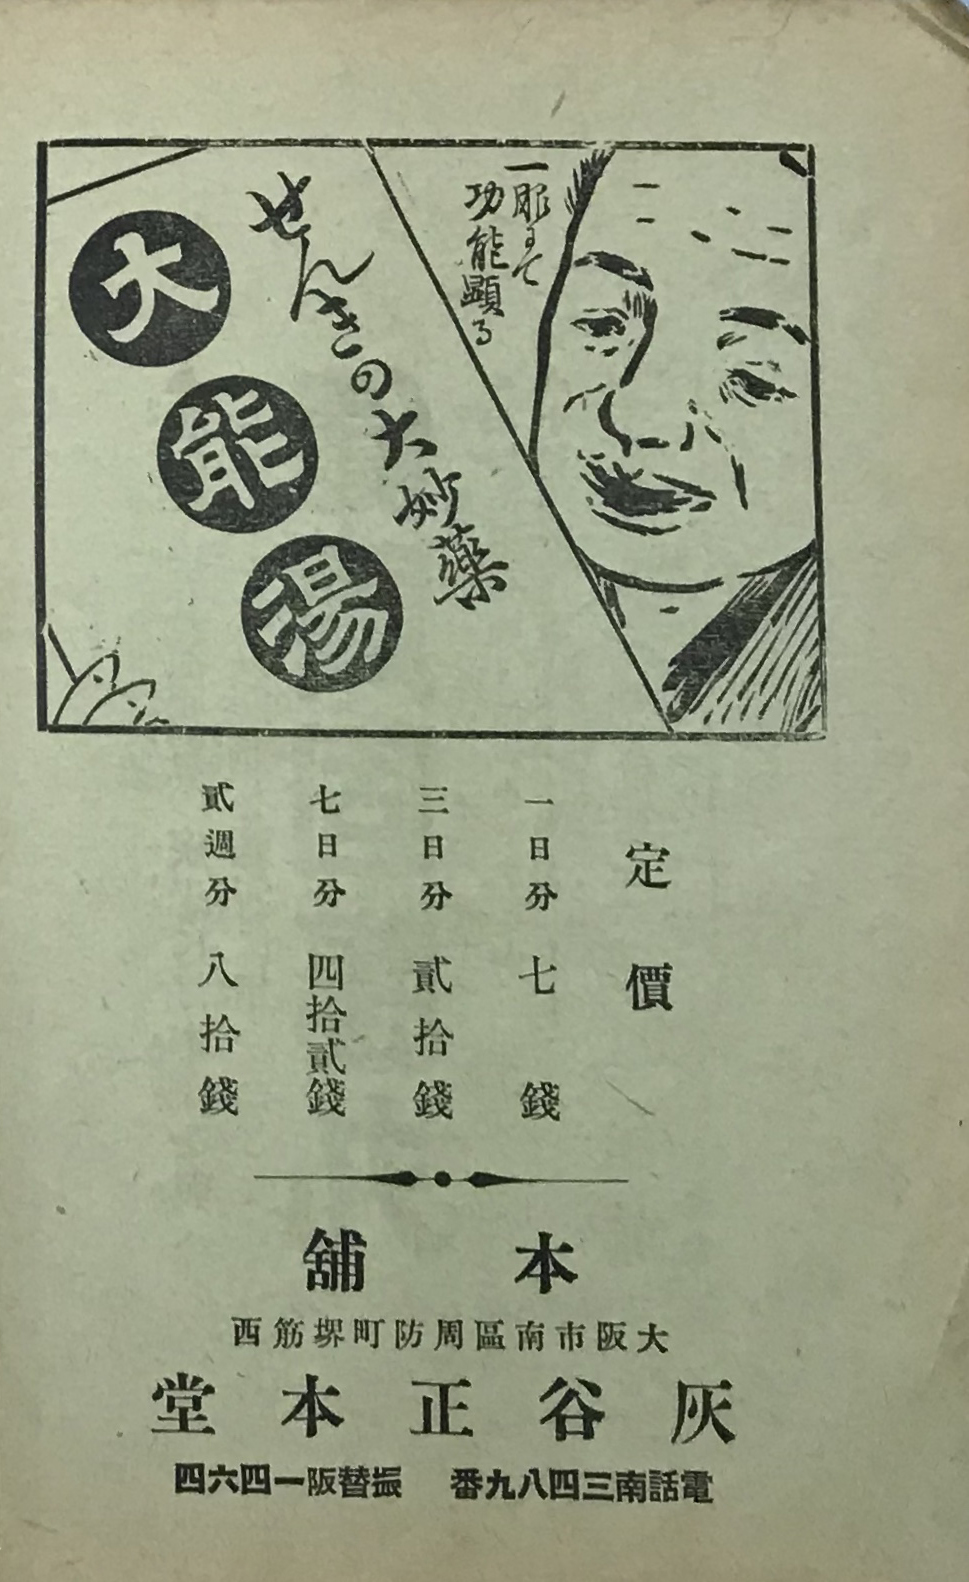 一服にて
功能顯る
せんきの大妙藥
大能湯
定價
一日分 七錢
三日分 貳拾錢
七日分 四拾貳錢
貳週分 八拾錢
本舖
大阪市南區周防町堺筋西
灰谷正本堂
電話南三四八九番 振替阪一四六四